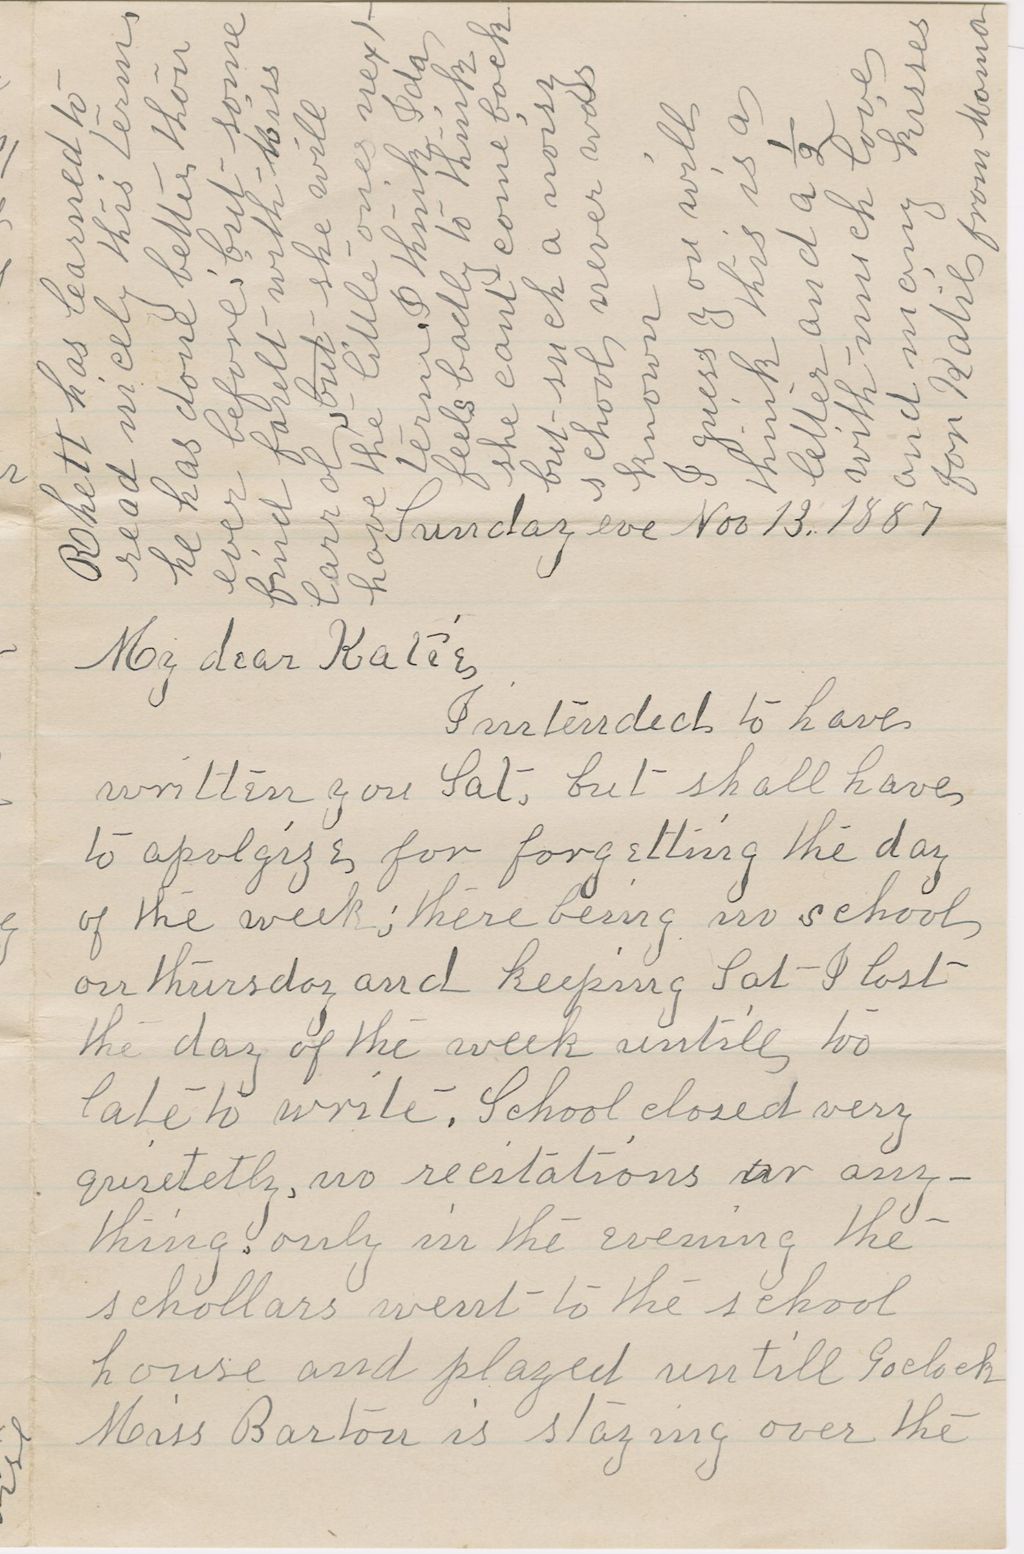 Sunday eve Nov 13. 1887
My dear Katie
I intended to have
written you Sat. but shall have
to apolgize for forgetting the day
of the week; there being no school
on thursday and keeping Sat I lost
the day of the week untill too
late to write. School closed very
quietetly, no recitations or any-
thing. only in the evening the
schollars went to the school
house and played untill 9oclock
Miss Barton is staying over the
Rhett has learned to
read nicely this term
he has done better than
ever before, but some
find falt with Miss
Carrol, but she will
have the little ones next
term. I think Ida
feels badly to think
she cant come back
but such a noisy
school never was
known
I guess you will
think this is a
letter and a 1/2
with much love
and many kisses
for Katie from Mama